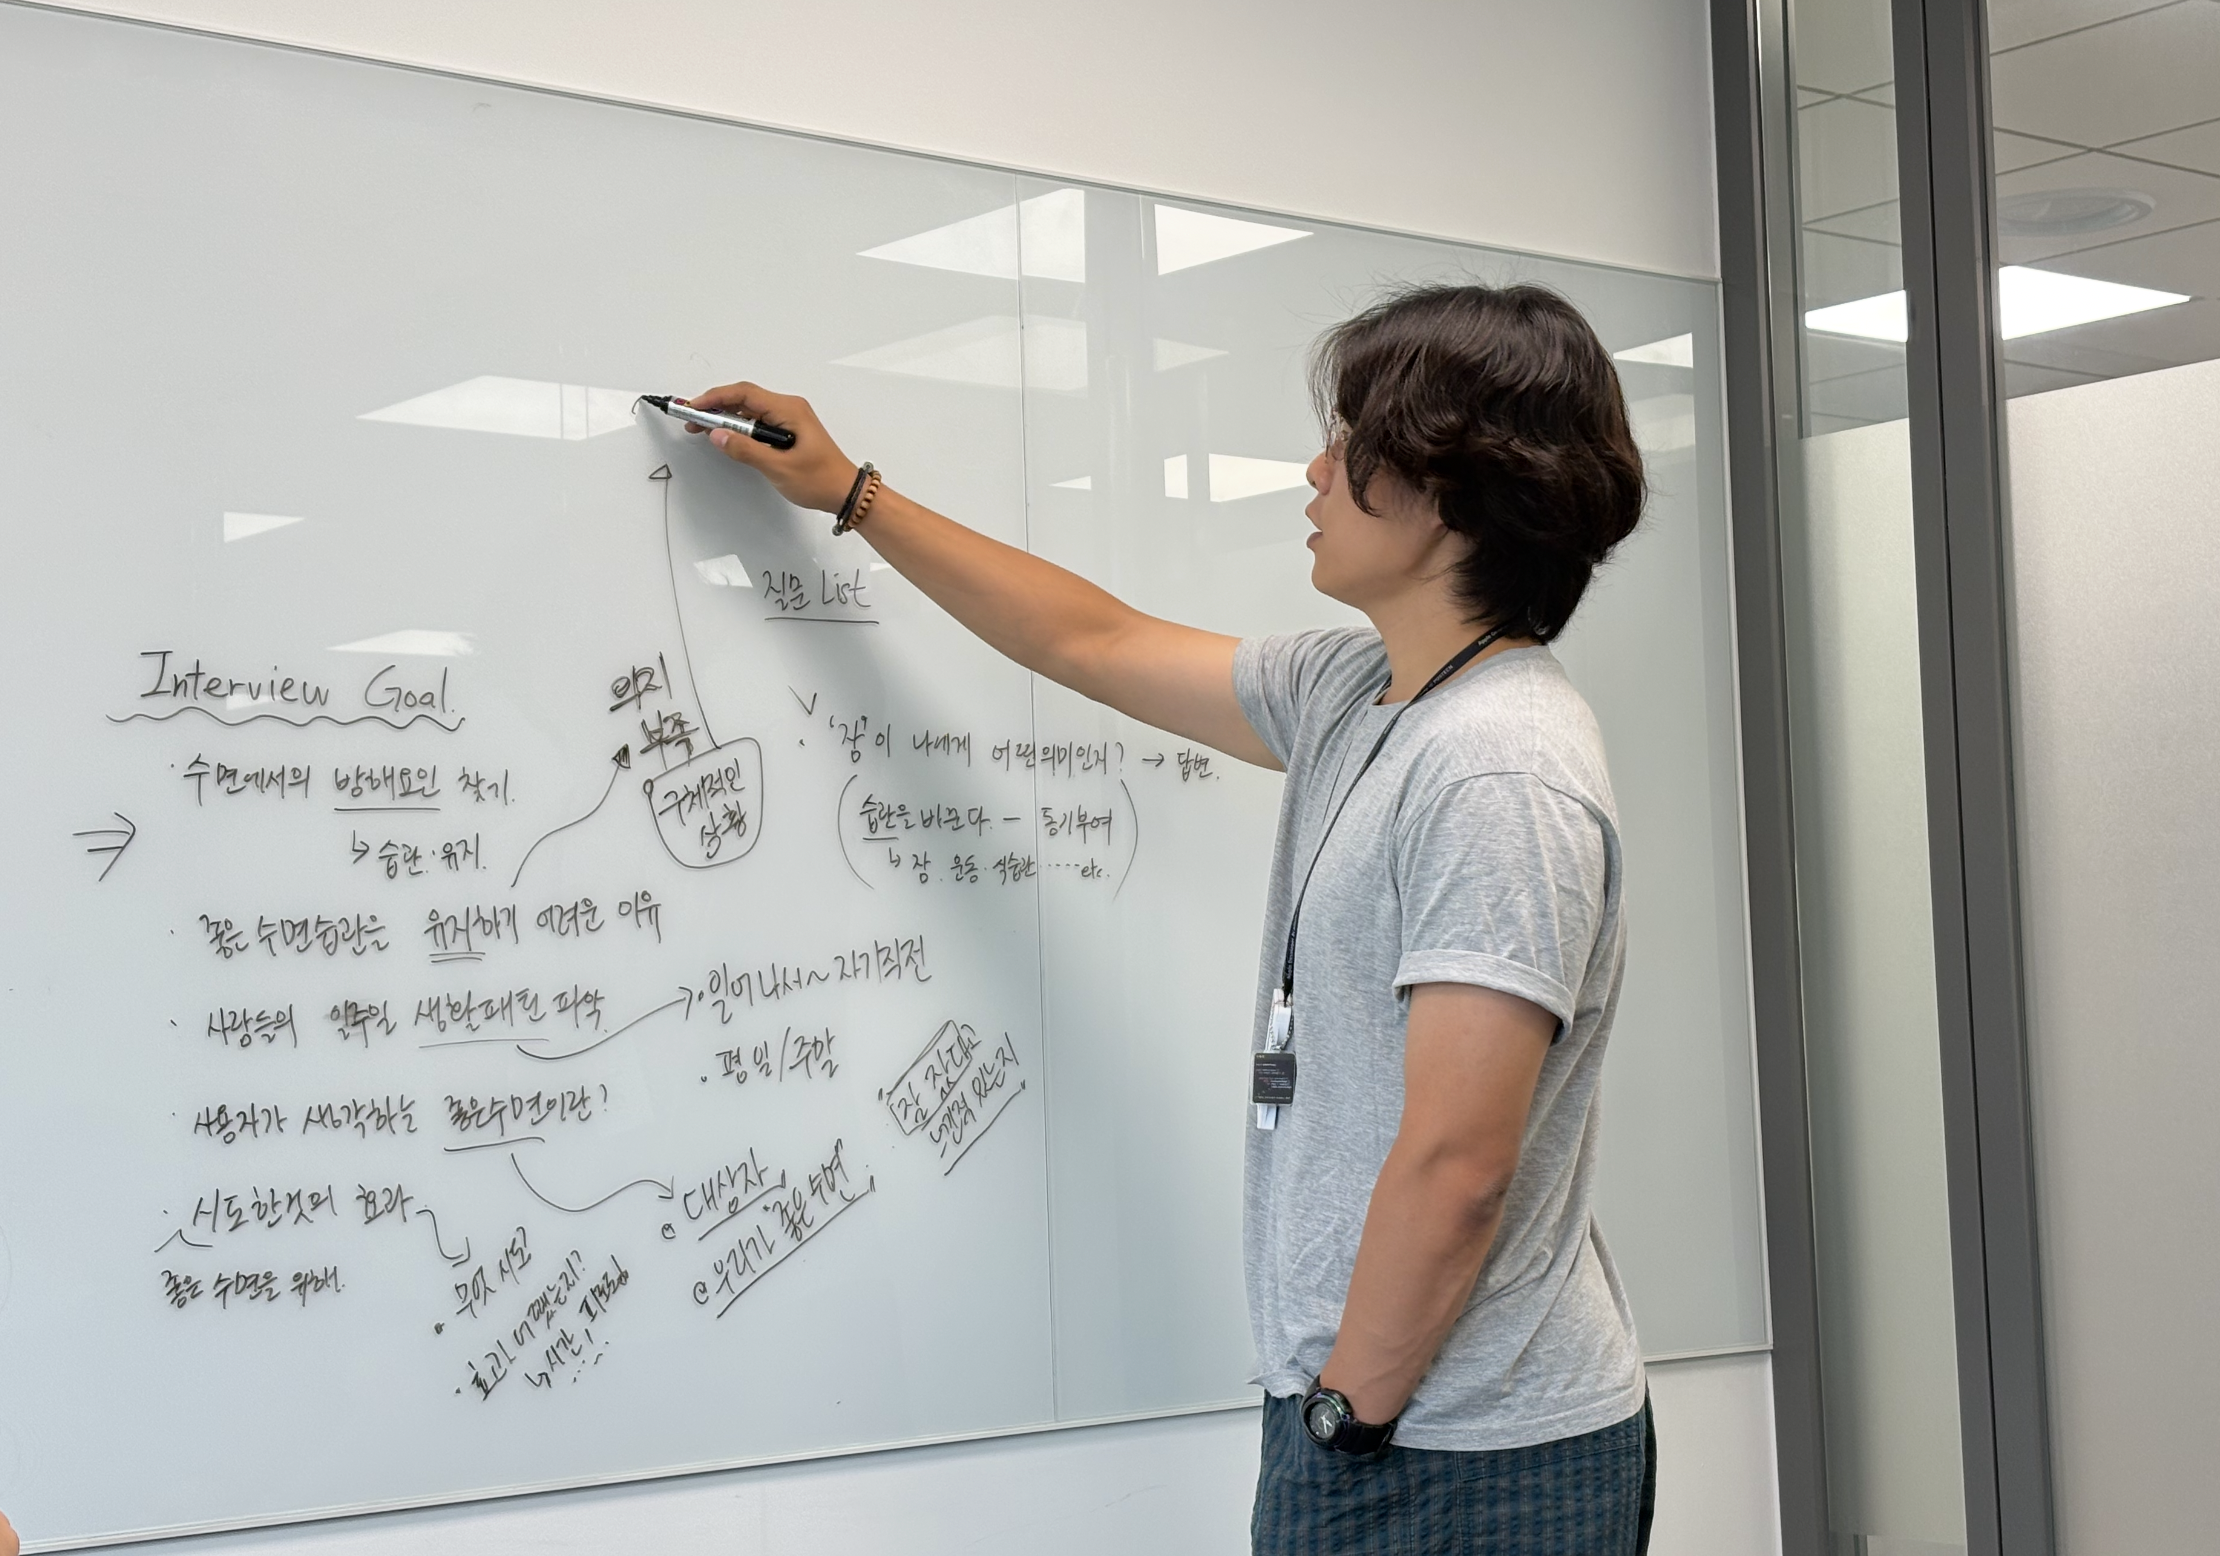 Interview Goal.
· 수면에서의 방해요인 찾기.
↳ 습관·유지.
· 좋은 수면습관을 유지하기 어려운 이유
· 사람들의 일주일 생활패턴 파악
· 사용자가 생각하는 좋은수면이란?
· 시도한것의 효과
좋은 수면을 위해.
의지
부족
구체적인
상황
· 일어나서~자기직전
· 평일/주말
대상자
@ 우리가 "좋은 수면"
"잘 잤다고
느낀적 있는지"
· 무엇 시도?
· 효과 어땠는지?
↳ 시간!
질문 List
· '잠'이 나에게 어떤의미인지? → 답변.
습관을 바꾼다. — 동기부여
↳ 잠. 운동·식습관·····etc.